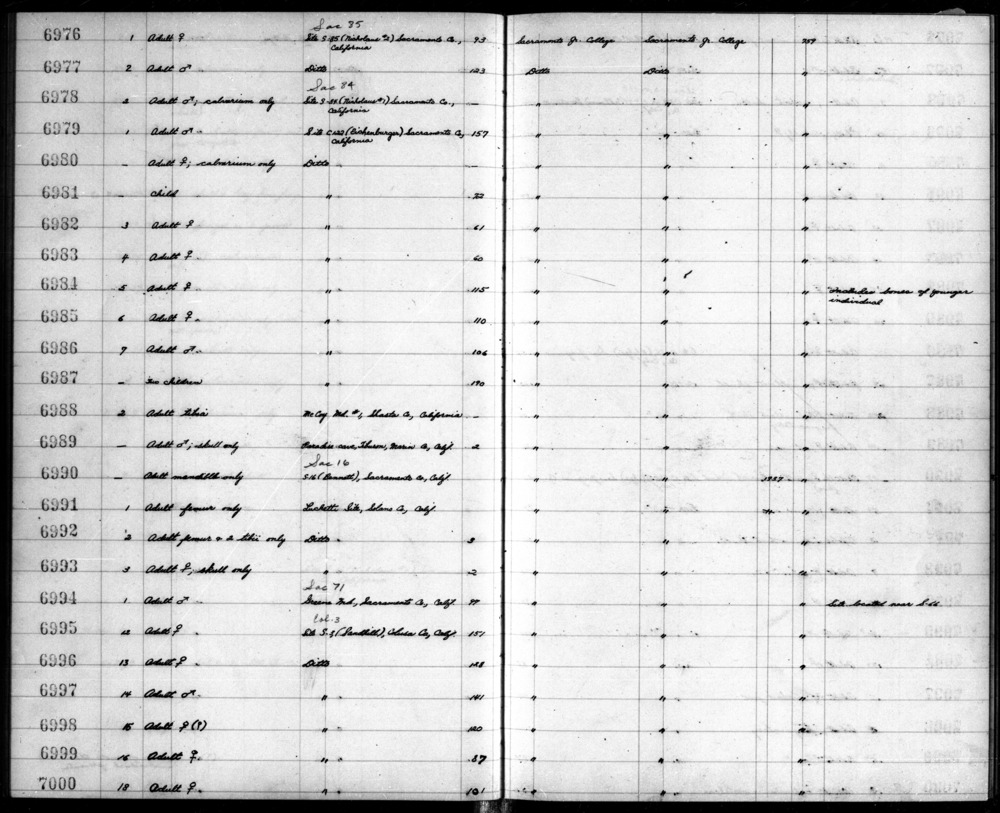 Sac 85
6976 1 Adult ♀ Site S-85 (Nicholaus #2) Sacramento Co., California 93 Sacramento Jr. College Sacramento Jr. College
6977 2 Adult ♂ Ditto 123 Ditto Ditto "
Sac 84
6978 2 Adult ♂; calvarium only Site S-84 (Nicholaus #1) Sacramento Co., California — " " "
6979 1 Adult ♂ Site (Eichenburger) Sacramento Co, California 157 " " "
6980 — Adult ♀; calvarium only Ditto — " " "
6981 — Child " 22 " " "
6982 3 Adult ♀ " 61 " " "
6983 4 Adult ♀ " 60 " " "
6984 5 Adult ♀ " 115 " " " Includes bones of younger individual
6985 6 Adult ♀ " 110 " " "
6986 7 Adult ♂ " 106 " " "
6987 — children " 190 " " "
6988 2 Adult tibia McCoy Md. #1, Shasta Co, California — " " "
6989 — Adult ♂; skull only Paradise cave, Tiburon, Marin Co, Calif. 2 " " "
Sac 16
6990 — Adult mandible only S-16 (Bennett), Sacramento Co, Calif. — " " 1937 "
6991 1 Adult femur only Luchetti Site, Solano Co, Calif. — " " " "
6992 2 Adult femur & 2 tibii only Ditto 3 " " "
6993 3 Adult ♀, skull only " 2 " " "
Sac 71
6994 1 Adult ♂ Greene Md., Sacramento Co, Calif. 99 " " " Site located near
Col. 3
6995 12 Adult ♀ Site S-3 (Sandhill), Colusa Co, Calif. 151 " " "
6996 13 Adult ♀ Ditto 128 " " "
6997 14 Adult ♂ " 141 " " "
6998 15 Adult ♀ (?) " 120 " " "
6999 16 Adult ♀ " 87 " " "
7000 18 Adult ♀ " 101 " " "